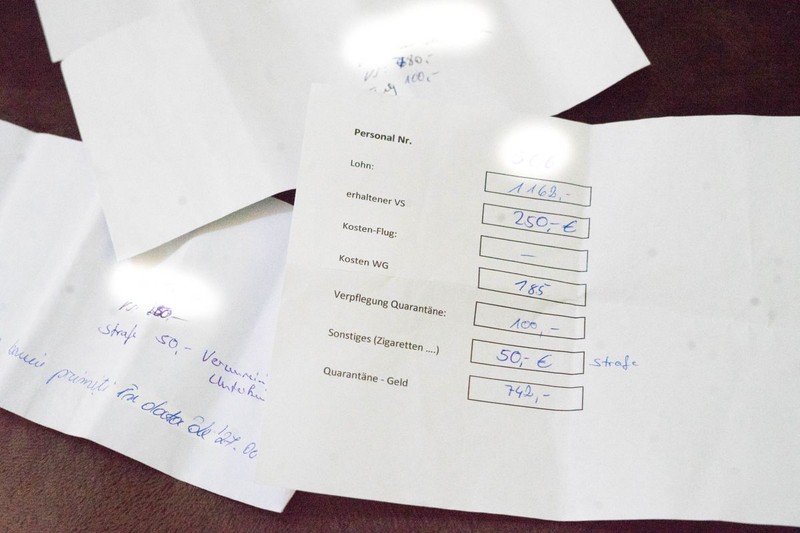 780,-
100,-
Personal Nr.
Lohn: 1162,-
erhaltener VS 250,- €
Kosten-Flug: –
Kosten WG 185
Verpflegung Quarantäne: 100,-
Sonstiges (Zigaretten ....) 50,- € Strafe
Quarantäne - Geld 742,-
Strafe 50,-
primiți în data de 27.00